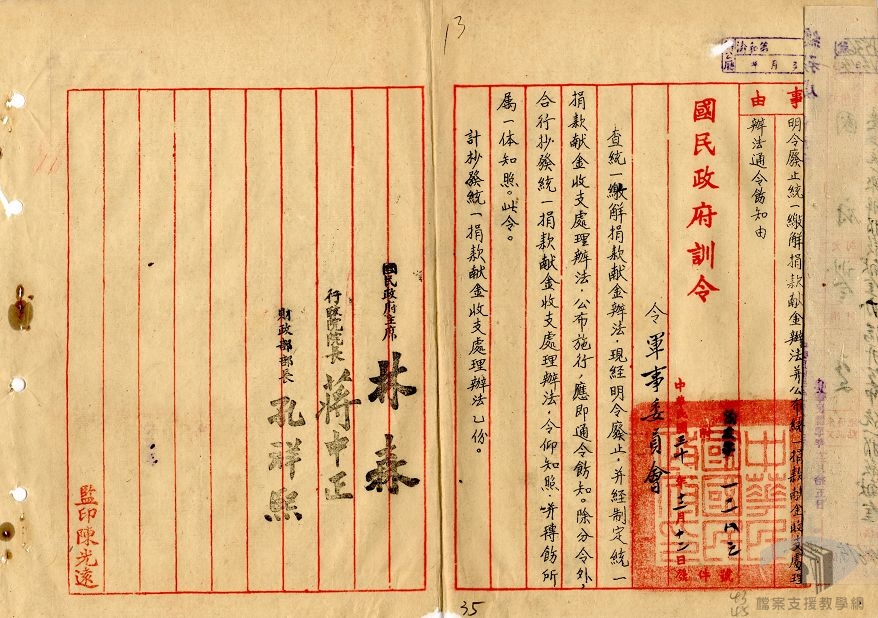 13
事由
明令廢止統一繳解捐款献金辦法并公布統一捐款献金收支處理
辦法通令飭知由
國民政府訓令
令軍事委員會
中華民國三十年十二月十二日
查統一繳解捐款献金辦法,現経明令廢止,并経制定統一
捐款献金收支處理辦法,公布施行,應即通令飭知。除分令外,
合行抄發統一捐款献金收支處理辦法,令仰知照,并轉飭所
属一体知照。此令。
計抄發統一捐款献金收支處理辦法乙份。
國民政府主席 林森
行政院院長 蔣中正
財政部部長 孔祥熙
監印陳光遠
35
檔案支援教學網